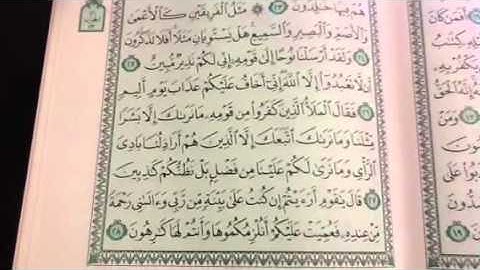 هُمْ فِيهَا خَٰلِدُونَ ٢٣ مَثَلُ ٱلْفَرِيقَيْنِ كَٱلْأَعْمَىٰ
وَٱلْأَصَمِّ وَٱلْبَصِيرِ وَٱلسَّمِيعِ هَلْ يَسْتَوِيَانِ مَثَلًا أَفَلَا تَذَكَّرُونَ
٢٤ وَلَقَدْ أَرْسَلْنَا نُوحًا إِلَىٰ قَوْمِهِۦٓ إِنِّى لَكُمْ نَذِيرٌ مُّبِينٌ ٢٥
أَن لَّا تَعْبُدُوٓا۟ إِلَّا ٱللَّهَ إِنِّىٓ أَخَافُ عَلَيْكُمْ عَذَابَ يَوْمٍ أَلِيمٍ
٢٦ فَقَالَ ٱلْمَلَأُ ٱلَّذِينَ كَفَرُوا۟ مِن قَوْمِهِۦ مَا نَرَىٰكَ إِلَّا بَشَرًا
مِّثْلَنَا وَمَا نَرَىٰكَ ٱتَّبَعَكَ إِلَّا ٱلَّذِينَ هُمْ أَرَاذِلُنَا بَادِىَ
ٱلرَّأْىِ وَمَا نَرَىٰ لَكُمْ عَلَيْنَا مِن فَضْلٍۭ بَلْ نَظُنُّكُمْ كَٰذِبِينَ
٢٧ قَالَ يَٰقَوْمِ أَرَءَيْتُمْ إِن كُنتُ عَلَىٰ بَيِّنَةٍ مِّن رَّبِّى وَءَاتَىٰنِى رَحْمَةً
مِّنْ عِندِهِۦ فَعُمِّيَتْ عَلَيْكُمْ أَنُلْزِمُكُمُوهَا وَأَنتُمْ لَهَا كَٰرِهُونَ ٢٨